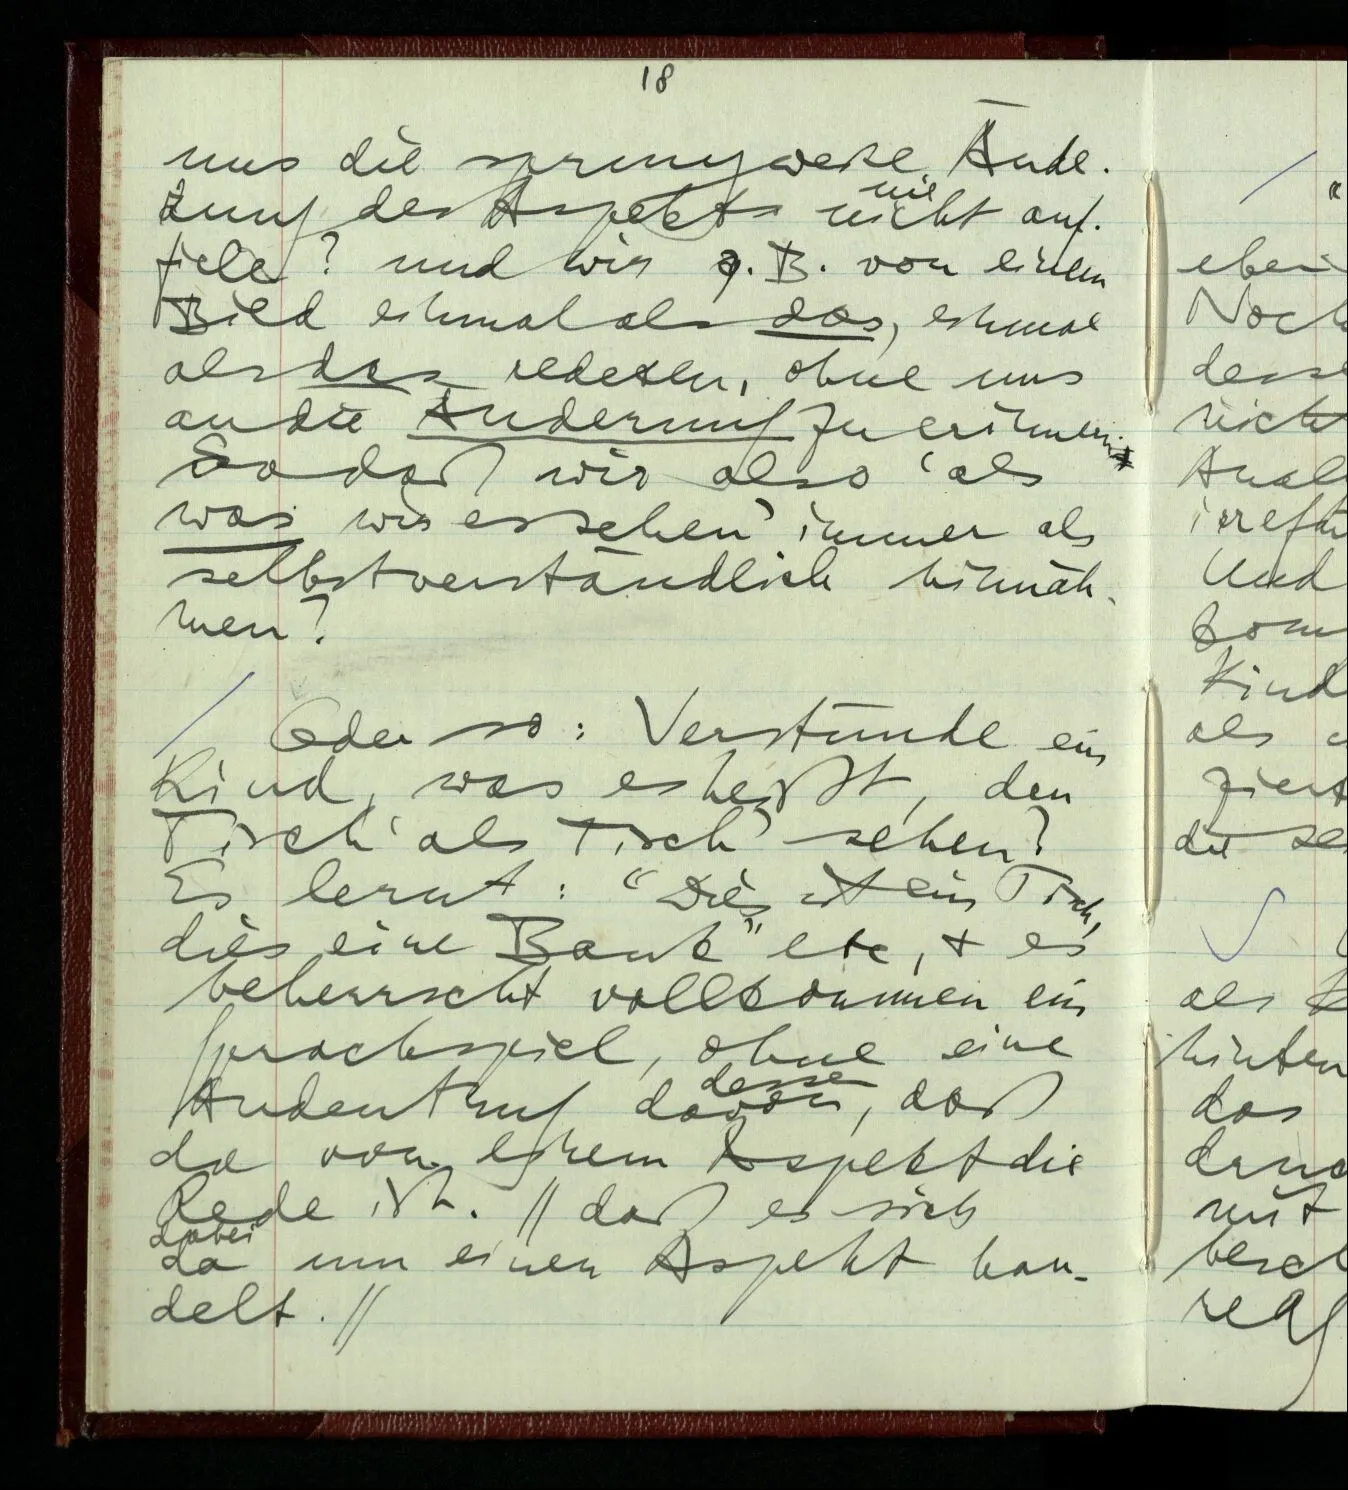 18
uns die sprungweise Ände-
rung des Aspekts nie
nicht auf-
fiele? und wir z.B. von einem
Bild einmal als das, einmal
als das redeten, ohne uns
an die Änderung zu erinnern?
Sodaß wir also ‘als
was wir es sehen’ immer als
selbstverständlich hinnäh-
men?
/ Oder so: Verstünde ein
Kind, was es heißt, den
Tisch ‘als Tisch’ sehen?
Es lernt: “Dies ist ein Tisch,
dies eine Bank” etc, + es
beherrscht vollkommen ein
Sprachspiel, ohne eine
Andeutung davon, daß
dessen
da von einem Aspekt die
Rede ist. // daß es sich
dabei
da um einen Aspekt han-
delt. //
/ “
Noch
als
die
✓
als
hinten
das
mit